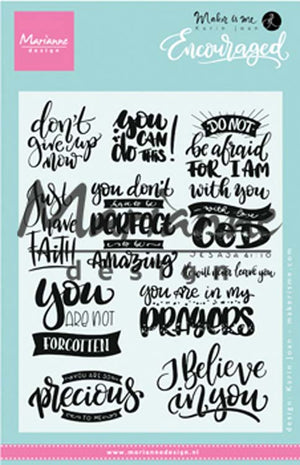 Marianne
design
Make is me
Karin Joan
Encouraged
don't
give up
now
you
CAN
do THIS!
DO NOT
be afraid
FOR I AM
with you
Just
have
FAITH
you don't
have to be
PERFECT
to be
Amazing
with our
GOD
JESAJA 41:10
I will never leave you
YOU
ARE NOT
FORGOTTEN
you are in my
PRAYERS
YOU ARE SO
precious
TO ME
I Believe
in you
Marianne
design
design: Karin Joan - makerisme.com
www.mariannedesign.nl